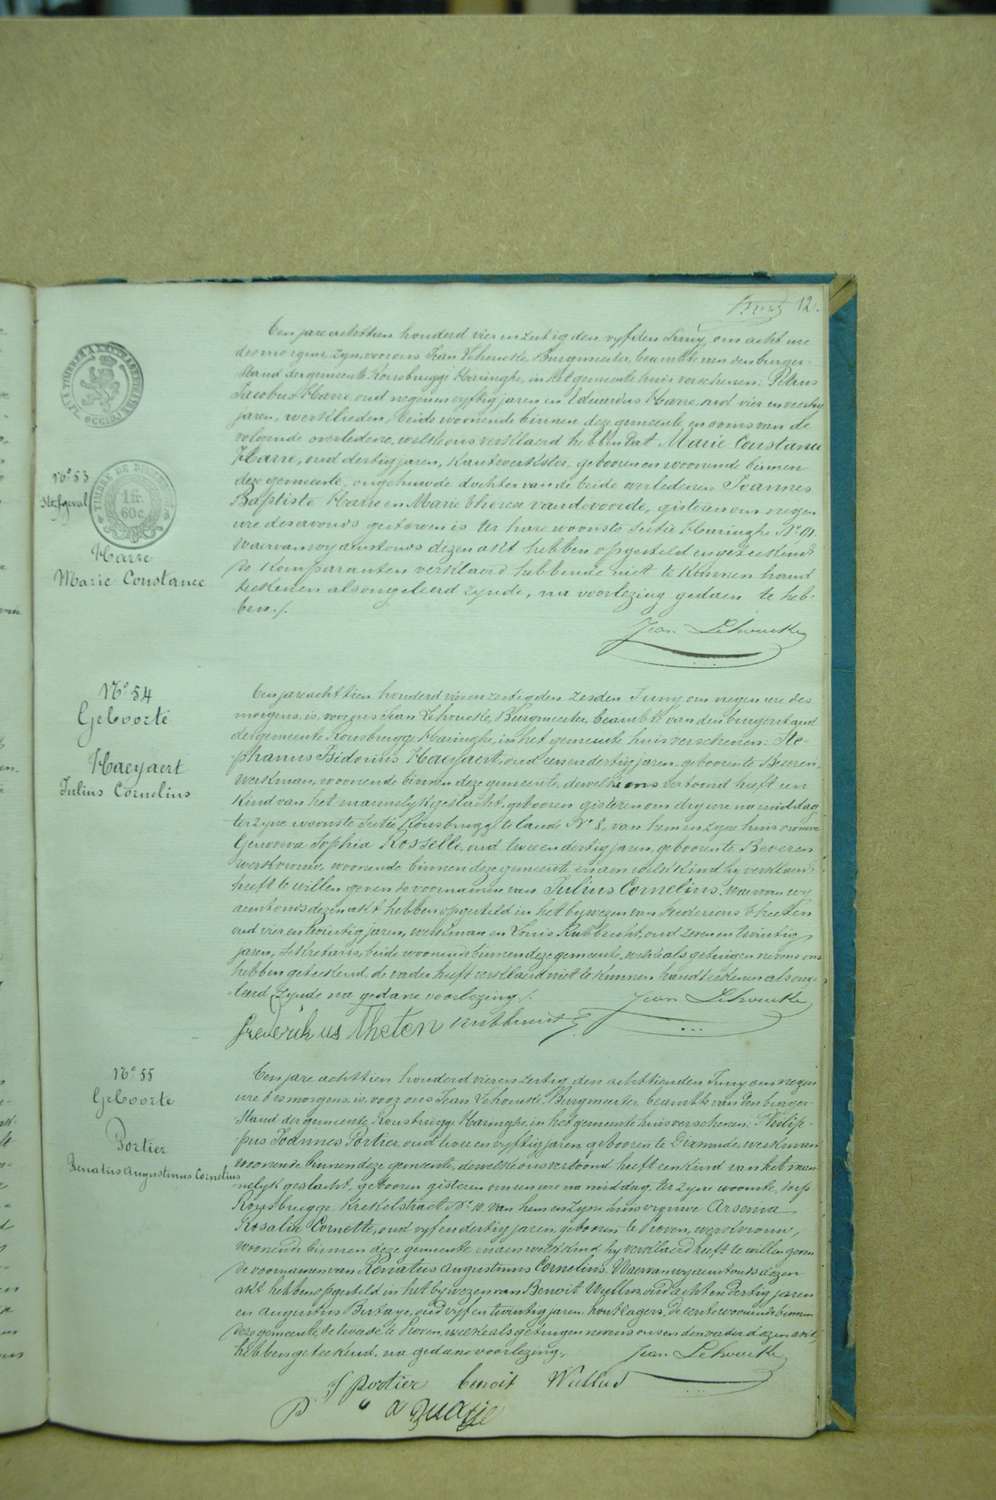 12.
Een jare achttien honderd vier en zestig den vyfden Juny, om acht ure
des morgens, zyn voor ons Jean Lehoucke, Burgmeester, beambte van den burger-
stand der gemeente Rousbrugge Haringhe, in het gemeente huis verschenen: Petrus
Jacobus Harre, oud negen en vyftig jaren en Eduardus Harre, oud vier en veertig
jaren, werklieden, beide woonende binnen deze gemeente, en ooms van de
volgende overledene, welke ons verklaard hebben dat Marie Constance
Harre, oud dertig jaren, kantwerkster, geboren en woonende binnen
deze gemeente, ongehuwde dochter van de beide overledenen Joannes
Baptiste Harre en Marie Theresa Vandevoorde, gisteren om negen
ure des avonds gestorven is ter hare woonste Sectie Haringhe No
Waervan wy aenstonds dezen akt hebben opgesteld en geteekend
de komparanten verklaerd hebbende niet te kunnen hand
teekenen als ongeleerd zynde, na voorlezing gedaen te heb-
ben./.
Jean Lehoucke
TIMBRE DE DIMENSION
1 fr.
60 c.
No 53
Sterfgeval
Harre
Marie Constance
No 54
Geboorte
Haeyaert
Julius Cornelius
Een jare achttien honderd vier en zestig den zesden Juny om negen ure des
morgens, is voor ons Jean Lehoucke, Burgmeester, beambte van den burgerstand
der gemeente Rousbrugge Haringhe, in het gemeente huis verschenen: Ste-
phanus Isidorius Haeyaert, oud een en dertig jaren, geboren te Beveren,
werkman, woonende binnen deze gemeente, dewelke ons vertoond heeft een
kind van het mannelyk geslacht, geboren gisteren om dry ure na middag
ter zyne woonste Sectie Rousbrugge te lande No 8, van hem en zyne huisvrouw
Genoveva Sophia Rosselle, oud twee en dertig jaren, geboren te Beveren
werkvrouw, woonende binnen deze gemeente, en aen welk kind hy verklaard
heeft te willen geven de voornamen van Julius Cornelius. Waervan wy
aenstonds dezen akt hebben opgesteld in het bywezen van Fredericus Theeten
oud vier en twintig jaren, werkman en Louis Rubbrecht, oud zeven en twintig
jaren, Sekretaris, beide woonende binnen deze gemeente, welke als getuigen nevens ons
hebben geteekend, de vader heeft verklaard niet te kunnen handteekenen als onge-
leerd zynde na gedane voorlezing./.
Jean Lehoucke
frederik us theten
No 55
Geboorte
Portier
Renatus Augustinus Cornelius
Een jare achttien honderd vier en zestig den achttienden Juny om negen
ure des morgens, is voor ons Jean Lehoucke, Burgmeester, beambte van den burger-
stand der gemeente Rousbrugge Haringhe, in het gemeente huis verschenen: Philip-
pus Joannes Portier, oud twee en vyftig jaren, geboren te Dixmude, werkman
woonende binnen deze gemeente, dewelke ons vertoond heeft een kind van het man-
nelyk geslacht, geboren gisteren om een ure na middag, ter zyne woonste, dorp
Rousbrugge Krekelstraat No 10, van hem en zyne huisvrouwe Arsenia
Rosalie Cornette, oud vyf en dertig jaren, geboren te Proven, werkvrouw,
woonende binnen deze gemeente en aen welk kind hy verklaerd heeft te willen geven
de voornamen van Renatus Augustinus Cornelius. Waervan wy aenstonds dezen
akt hebben opgesteld in het bywezen van Benoit, oud acht en dertig jaren
en Augustus, oud vyf en twintig jaren, de eerste woonende binnen
deze gemeente, de tweede te Proven, welke als getuigen nevens ons en den vader dezen akt
hebben geteekend, na gedane voorlezing.
Jean Lehoucke
portier benoit